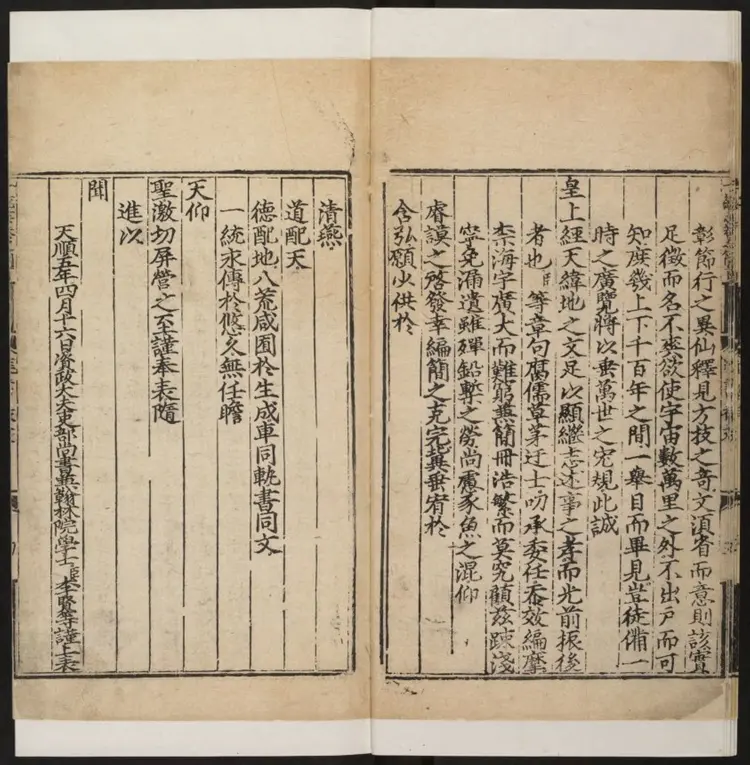 彰節行之異仙釋見方技之竒文湏省而意則該實
足徵而名不爽欲使宇宙數萬里之外不出戶而可
知庶幾上下千百年之間一舉目而畢見豈徒備一
時之廣覽將以垂萬世之宏規此誠
皇上經天緯地之文足以顯繼志述事之孝而光前振後
者也臣等章句腐儒草茅迂士叨承委任忝效編摩
柰海宇廣大而難窮兼簡冊浩繁而莫究顧玆踈淺
寧免漏遺雖殫鉛槧之勞尚慮豕魚之混仰
睿謨之啓發幸編簡之克完冀垂宥於
含弘願少供於
清燕
道配天
德配地八荒咸囿於生成車同軌書同文
一統永傳於悠久無任瞻
天仰
聖激切屏營之至謹奉表隨
進以
聞
天順五年四月十六日資政大夫吏部尚書兼翰林院學士臣李賢等謹上表